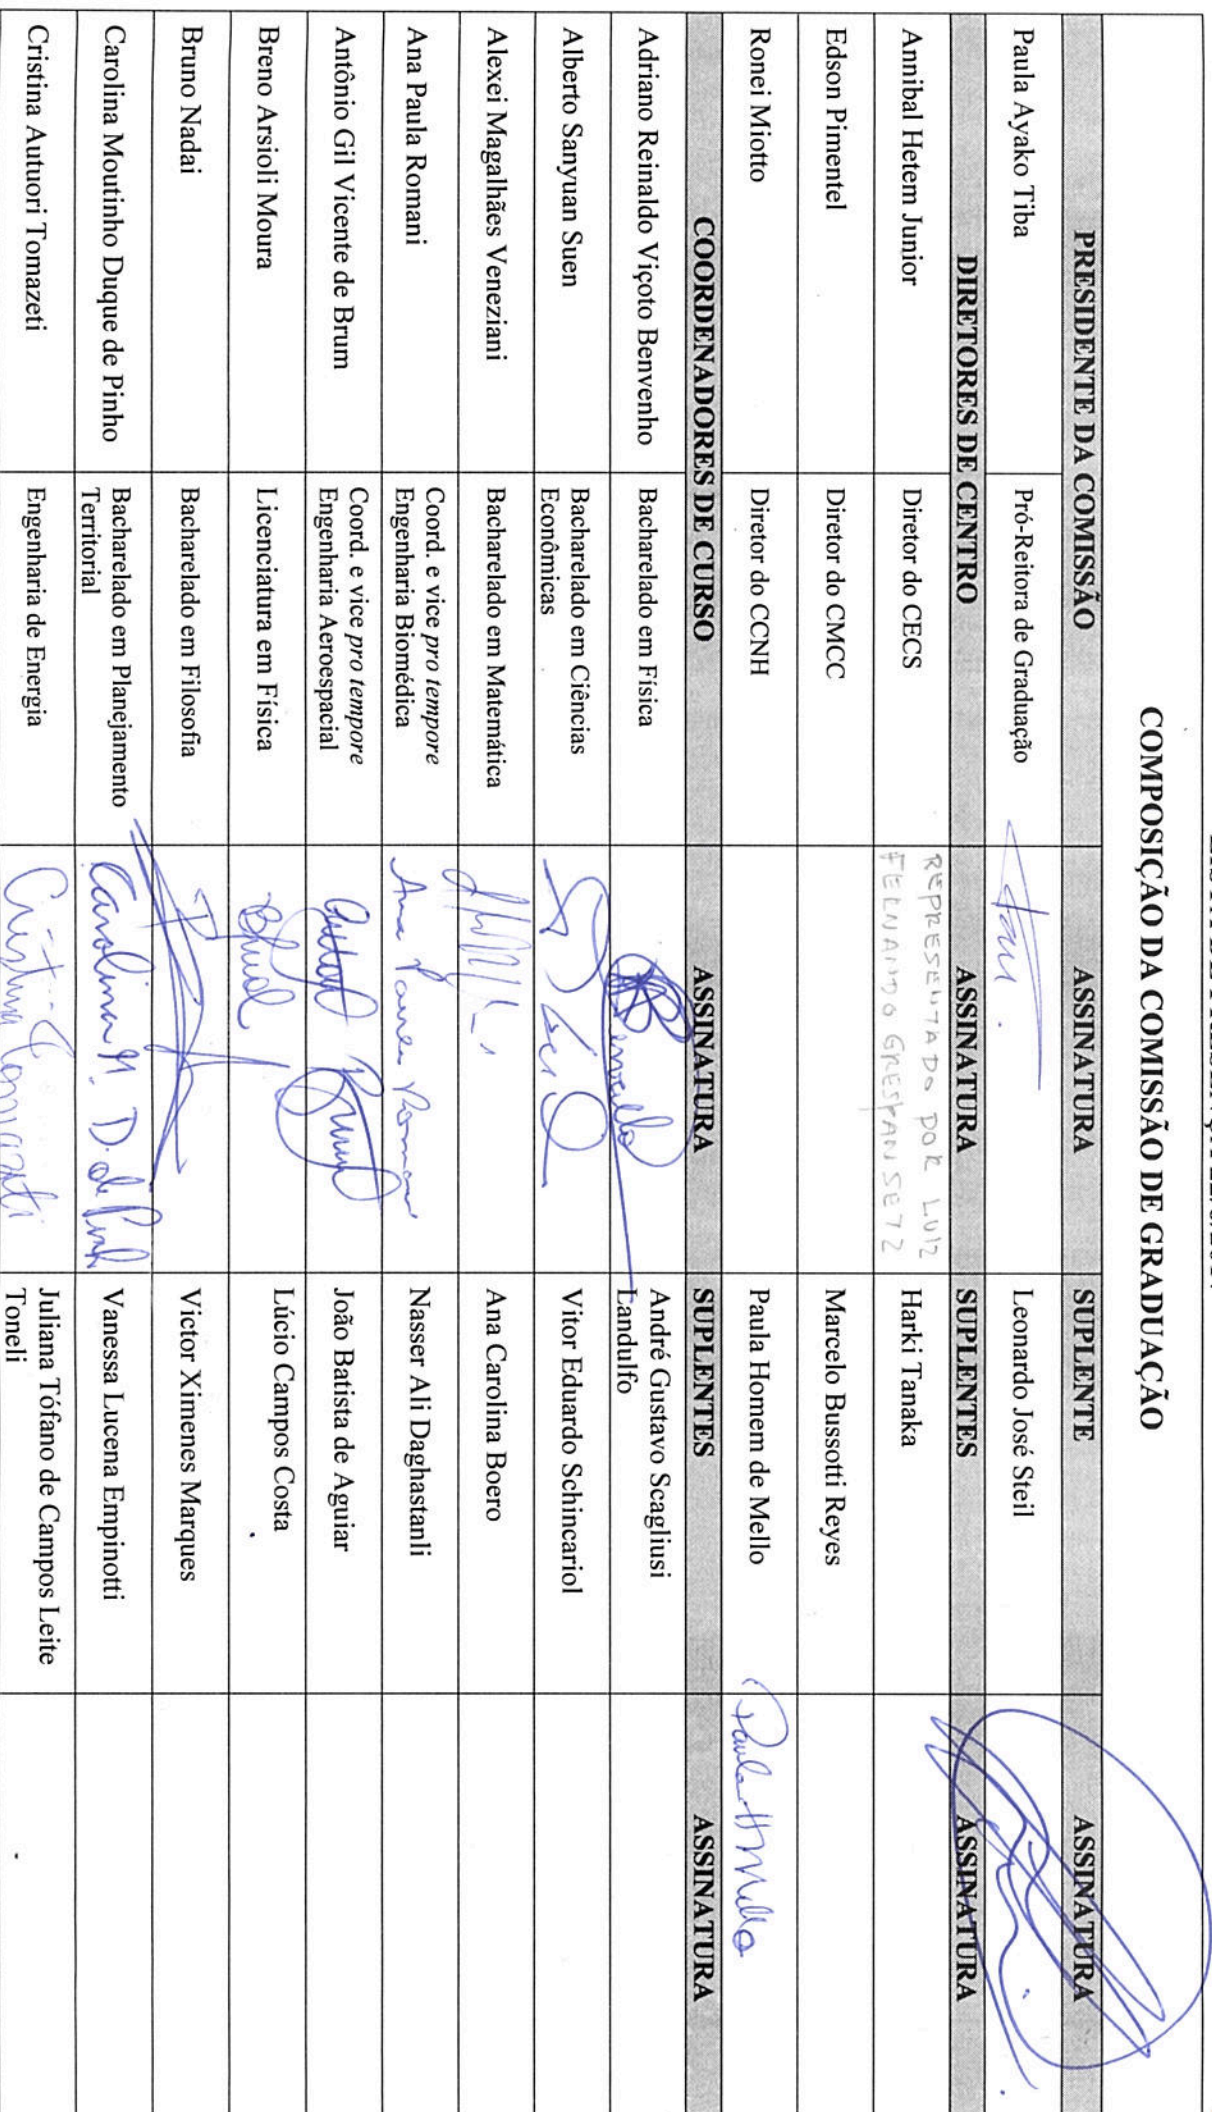 COMPOSIÇÃO DA COMISSÃO DE GRADUAÇÃO
PRESIDENTE DA COMISSÃO ASSINATURA SUPLENTE ASSINATURA
Paula Ayako Tiba Pró-Reitora de Graduação Leonardo José Steil
DIRETORES DE CENTRO ASSINATURA SUPLENTES ASSINATURA
Annibal Hetem Junior Diretor do CECS REPRESENTADO POR LUIZ Harki Tanaka
FERNANDO GRESPAN SETZ
Edson Pimentel Diretor do CMCC Marcelo Bussotti Reyes
Ronei Miotto Diretor do CCNH Paula Homem de Mello Paula H Mello
COORDENADORES DE CURSO ASSINATURA SUPLENTES ASSINATURA
Adriano Reinaldo Viçoto Benvenho Bacharelado em Física Benvenho André Gustavo Scagliusi
Landulfo
Alberto Sanyuan Suen Bacharelado em Ciências
Econômicas Vitor Eduardo Schincariol
Alexei Magalhães Veneziani Bacharelado em Matemática Ana Carolina Boero
Ana Paula Romani Coord. e vice pro tempore
Engenharia Biomédica Ana Paula Romani Nasser Ali Daghastanli
Antônio Gil Vicente de Brum Coord. e vice pro tempore
Engenharia Aeroespacial Brum João Batista de Aguiar
Breno Arsioli Moura Licenciatura em Física Lúcio Campos Costa
Bruno Nadai Bacharelado em Filosofia Victor Ximenes Marques
Carolina Moutinho Duque de Pinho Bacharelado em Planejamento
Territorial Carolina M. D. de Pinho Vanessa Lucena Empinotti
Cristina Autuori Tomazeti Engenharia de Energia Cristina Tomazeti Juliana Tófano de Campos Leite
Toneli